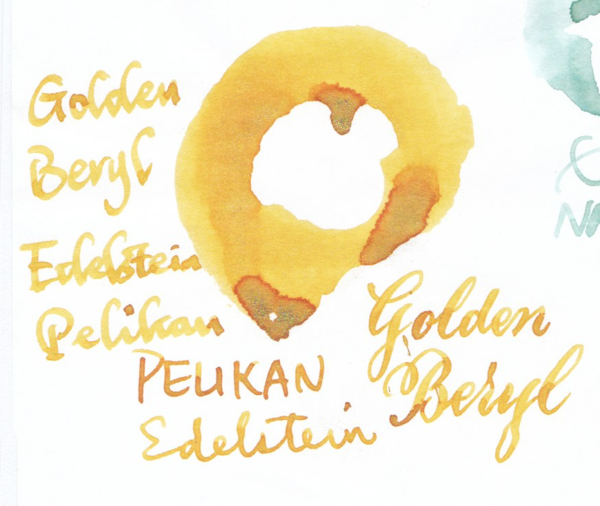 Golden
Beryl
Edelstein
Pelikan
PELIKAN
Edelstein
Golden
Beryl